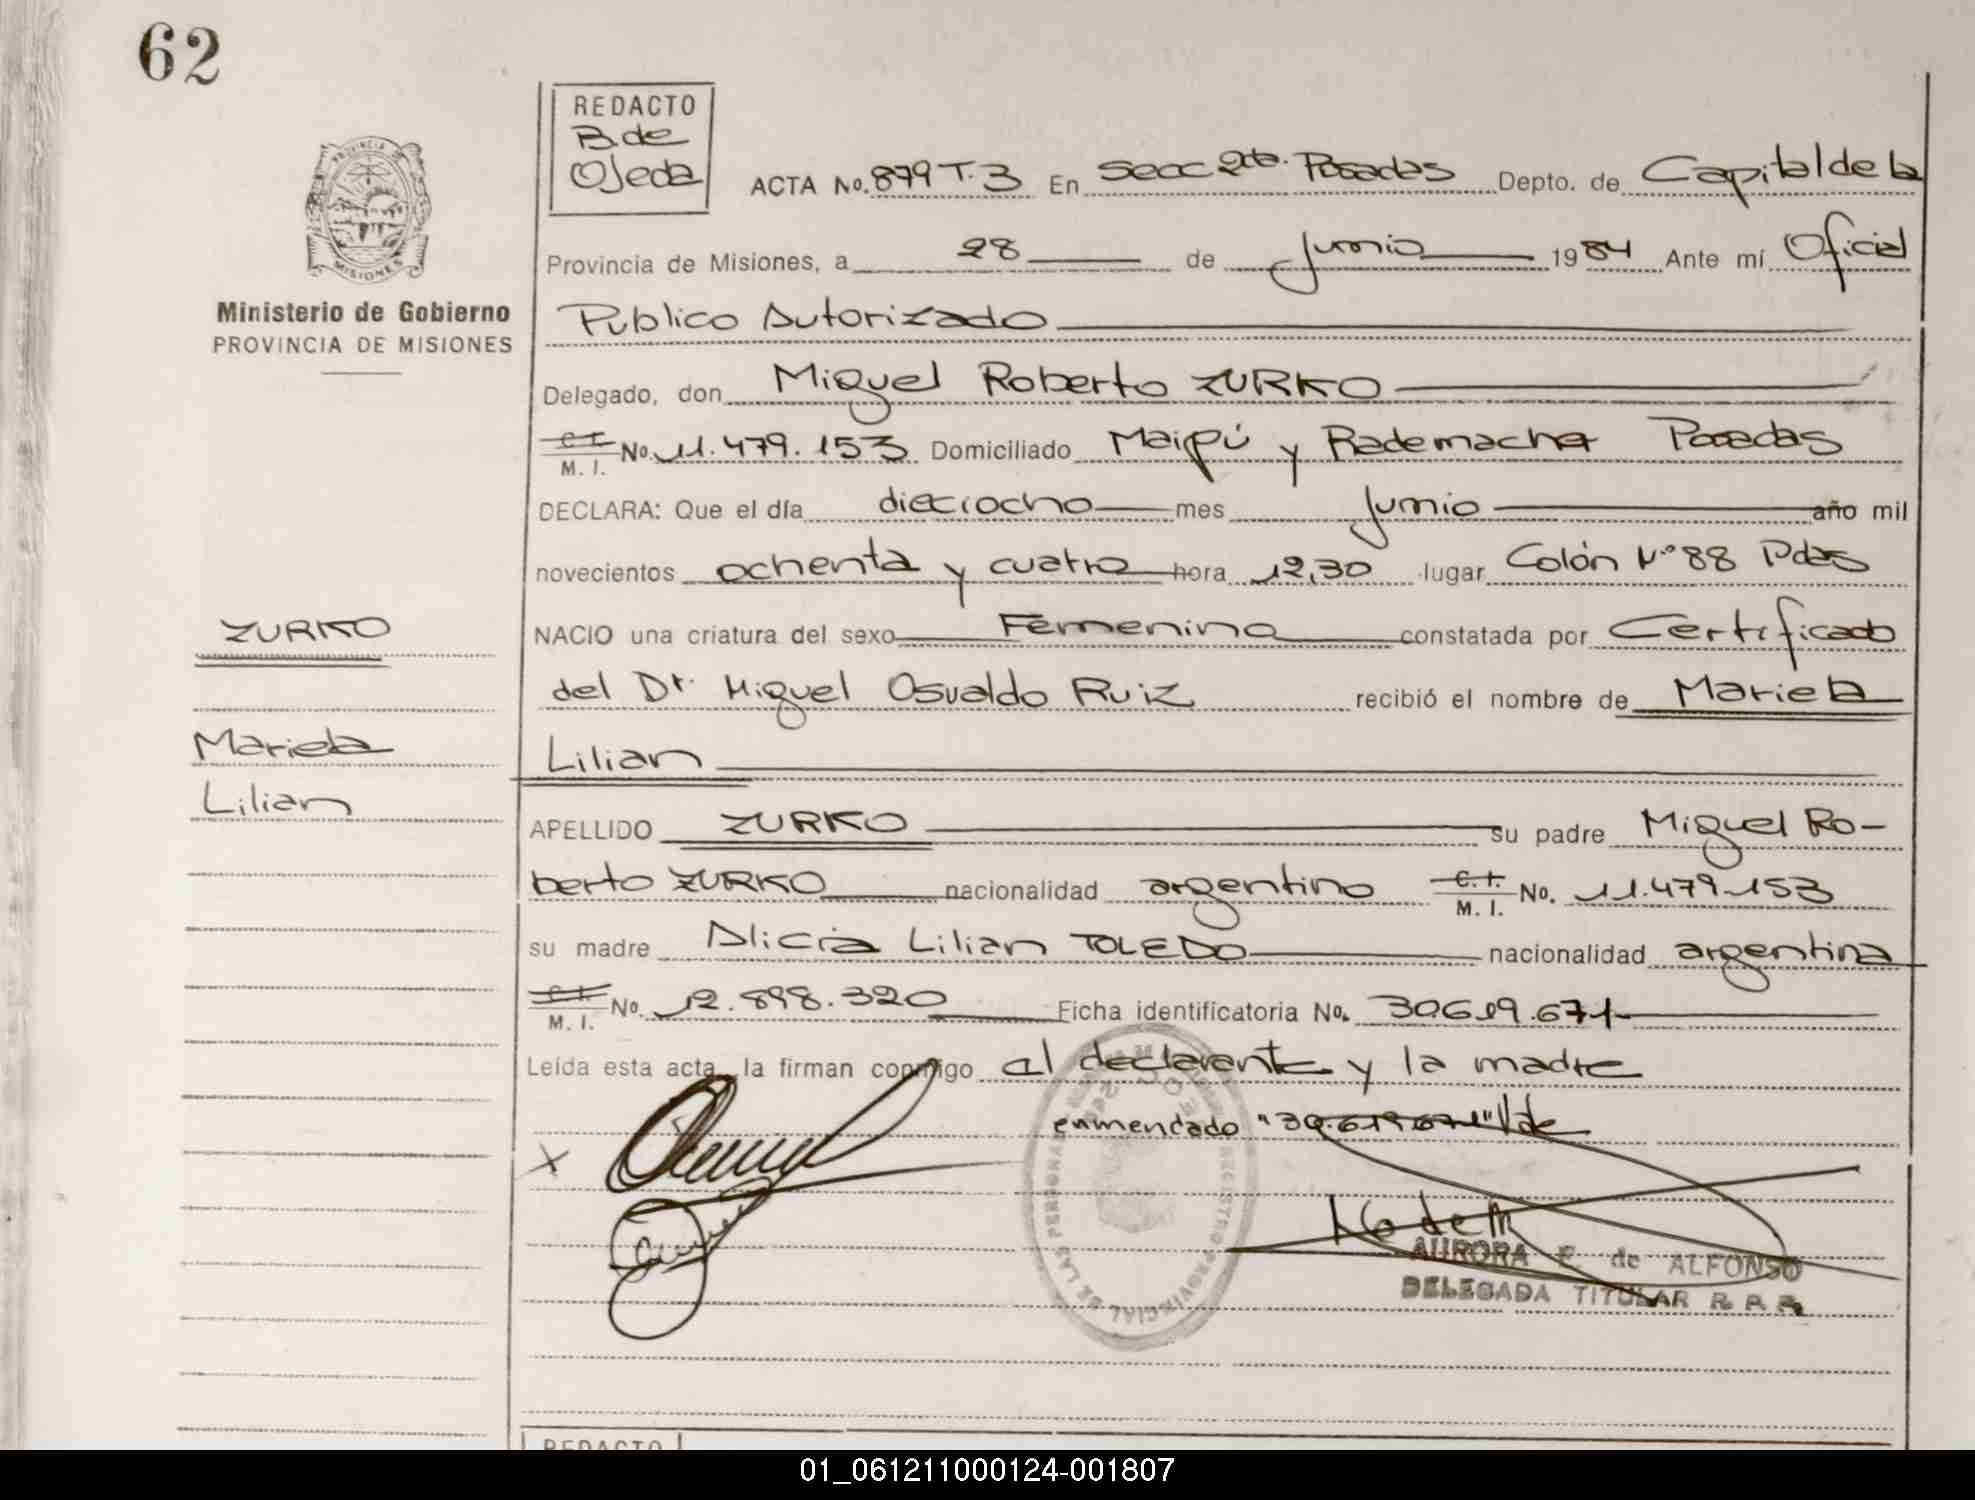 62
REDACTO
B. de
Ojeda
ACTA No. 879 T. 3 En Secc 2da. Posadas Depto. de Capital de la
PROVINCIA DE
MISIONES
Provincia de Misiones, a 28 de Junio 1984 Ante mí Oficial
Ministerio de Gobierno
PROVINCIA DE MISIONES
Publico Autorizado
Delegado, don Miguel Roberto ZURKO
C. I.
M. I. No. 11.479.153 Domiciliado Maipú y Rademacher Posadas
DECLARA: Que el día dieciocho mes Junio año mil
novecientos ochenta y cuatro hora 12,30 lugar Colón Nº 88 Pdas
ZURKO
NACIO una criatura del sexo Femenino constatada por Certificado
del Dr. Miguel Osvaldo Ruiz recibió el nombre de Mariela
Mariela
Lilian
Lilian
APELLIDO ZURKO su padre Miguel Ro-
berto ZURKO nacionalidad argentino C. I.
M. I. No. 11.479.153
su madre Alicia Lilian TOLEDO nacionalidad argentina
C. I.
M. I. No. 12.898.320 Ficha identificatoria No. 30619.671
Leída esta acta, la firman conmigo el declarante y la madre
enmendado "30.619671" Vale
X
REGISTRO PROVINCIAL DE LAS PERSONAS
AURORA E. de ALFONSO
DELEGADA TITULAR R. P. P.
REDACTO
01_061211000124-001807